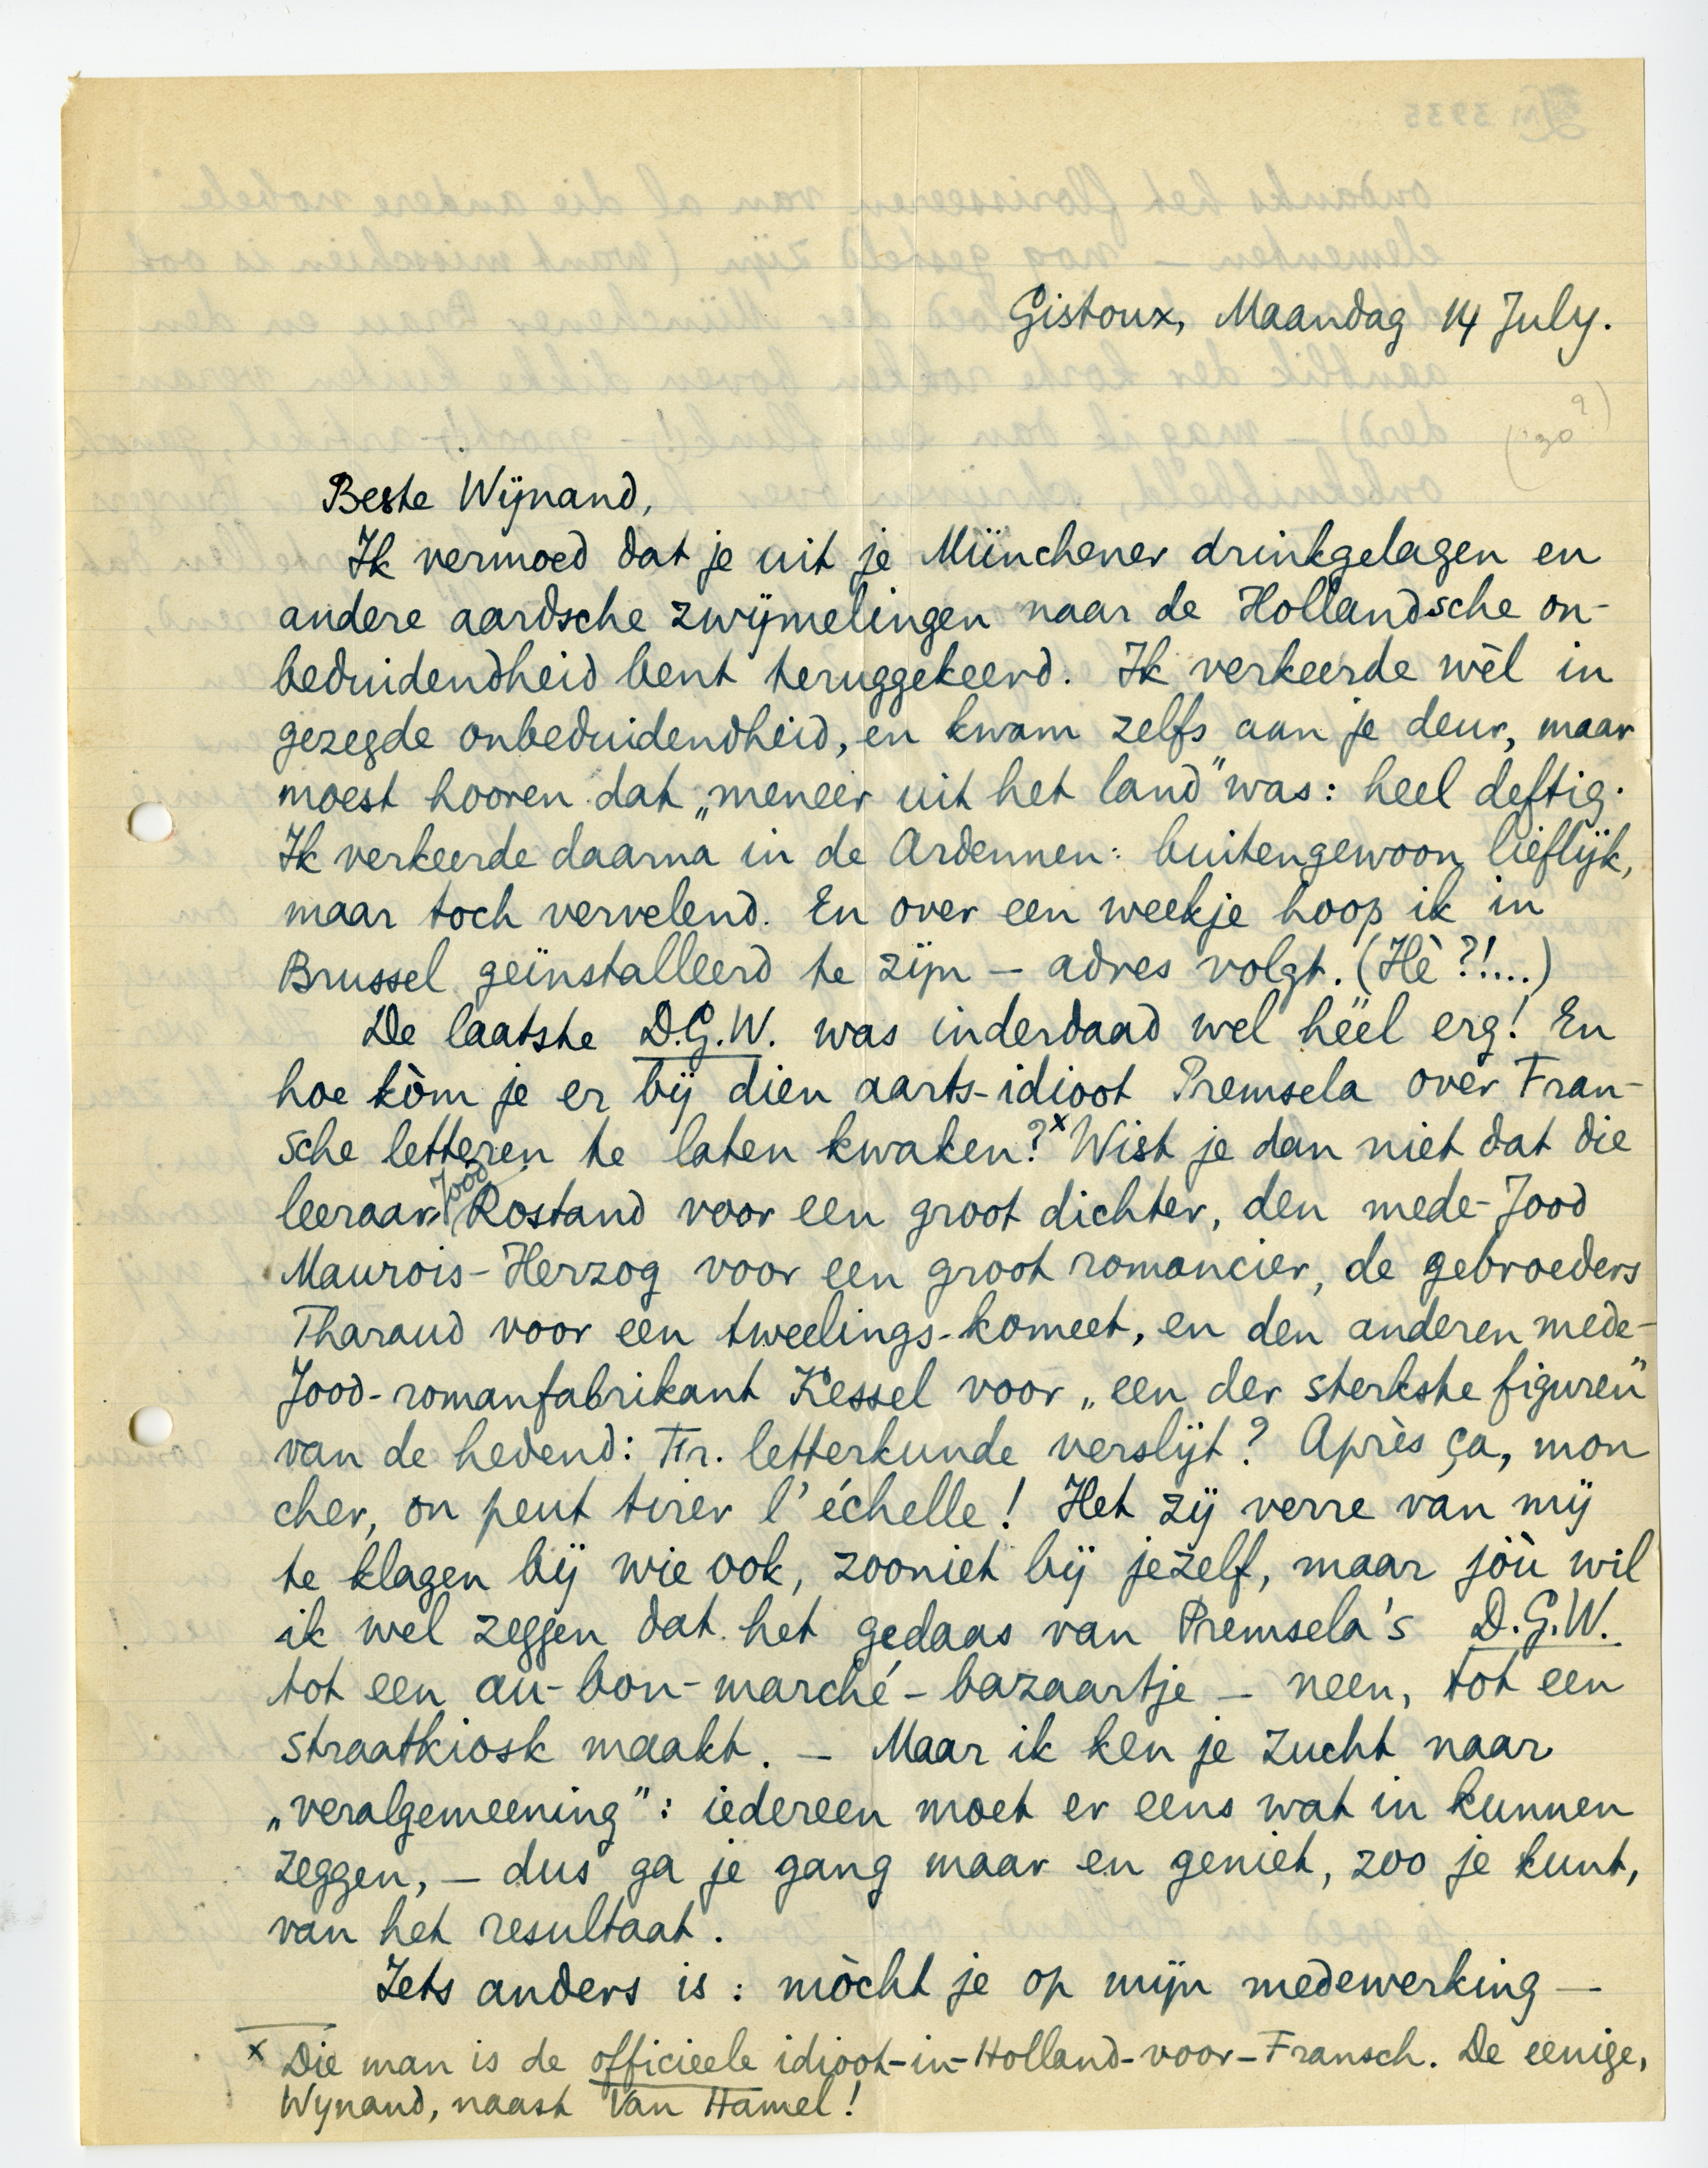 Gistoux, Maandag 14 July.
('30?)
Beste Wijnand,
Ik vermoed dat je uit je Münchener drinkgelagen en
andere aardsche zwijmelingen naar de Hollandsche on-
beduidendheid bent teruggekeerd. Ik verkeerde wèl in
gezegde onbeduidendheid, en kwam zelfs aan je deur, maar
moest hooren dat „meneer uit het land" was: heel deftig.
Ik verkeerde daarna in de Ardennen: buitengewoon lieflijk,
maar toch vervelend. En over een weekje hoop ik in
Brussel geïnstalleerd te zijn – adres volgt. (Hè?!...)
De laatste D.G.W. was inderdaad wel héél erg! En
hoe kòm je er bij dien aarts-idioot Premsela over Fran-
sche letteren te laten kwaken?x Wist je dan niet dat die
leeraar-Jood Rostand voor een groot dichter, den mede-Jood
Maurois-Herzog voor een groot romancier, de gebroeders
Tharaud voor een tweelings-komeet, en den anderen mede-
Jood-romanfabrikant Kessel voor „een der sterkste figuren"
van de hedend: Fr. letterkunde verslijt? Après ça, mon
cher, on peut tirer l'échelle! Het zij verre van mij
te klagen bij wie ook, zooniet bij jezelf, maar jòù wil
ik wel zeggen dat het gedaas van Premsela's D.G.W.
tot een au-bon-marché-bazaartje – neen, tot een
straatkiosk maakt. – Maar ik ken je zucht naar
„veralgemeening": iedereen moet er eens wat in kunnen
zeggen, – dus ga je gang maar en geniet, zoo je kunt,
van het resultaat.
Iets anders is: mòcht je op mijn medewerking –
x Die man is de officieele idioot-in-Holland-voor-Fransch. De eenige,
Wynand, naast Van Hamel!